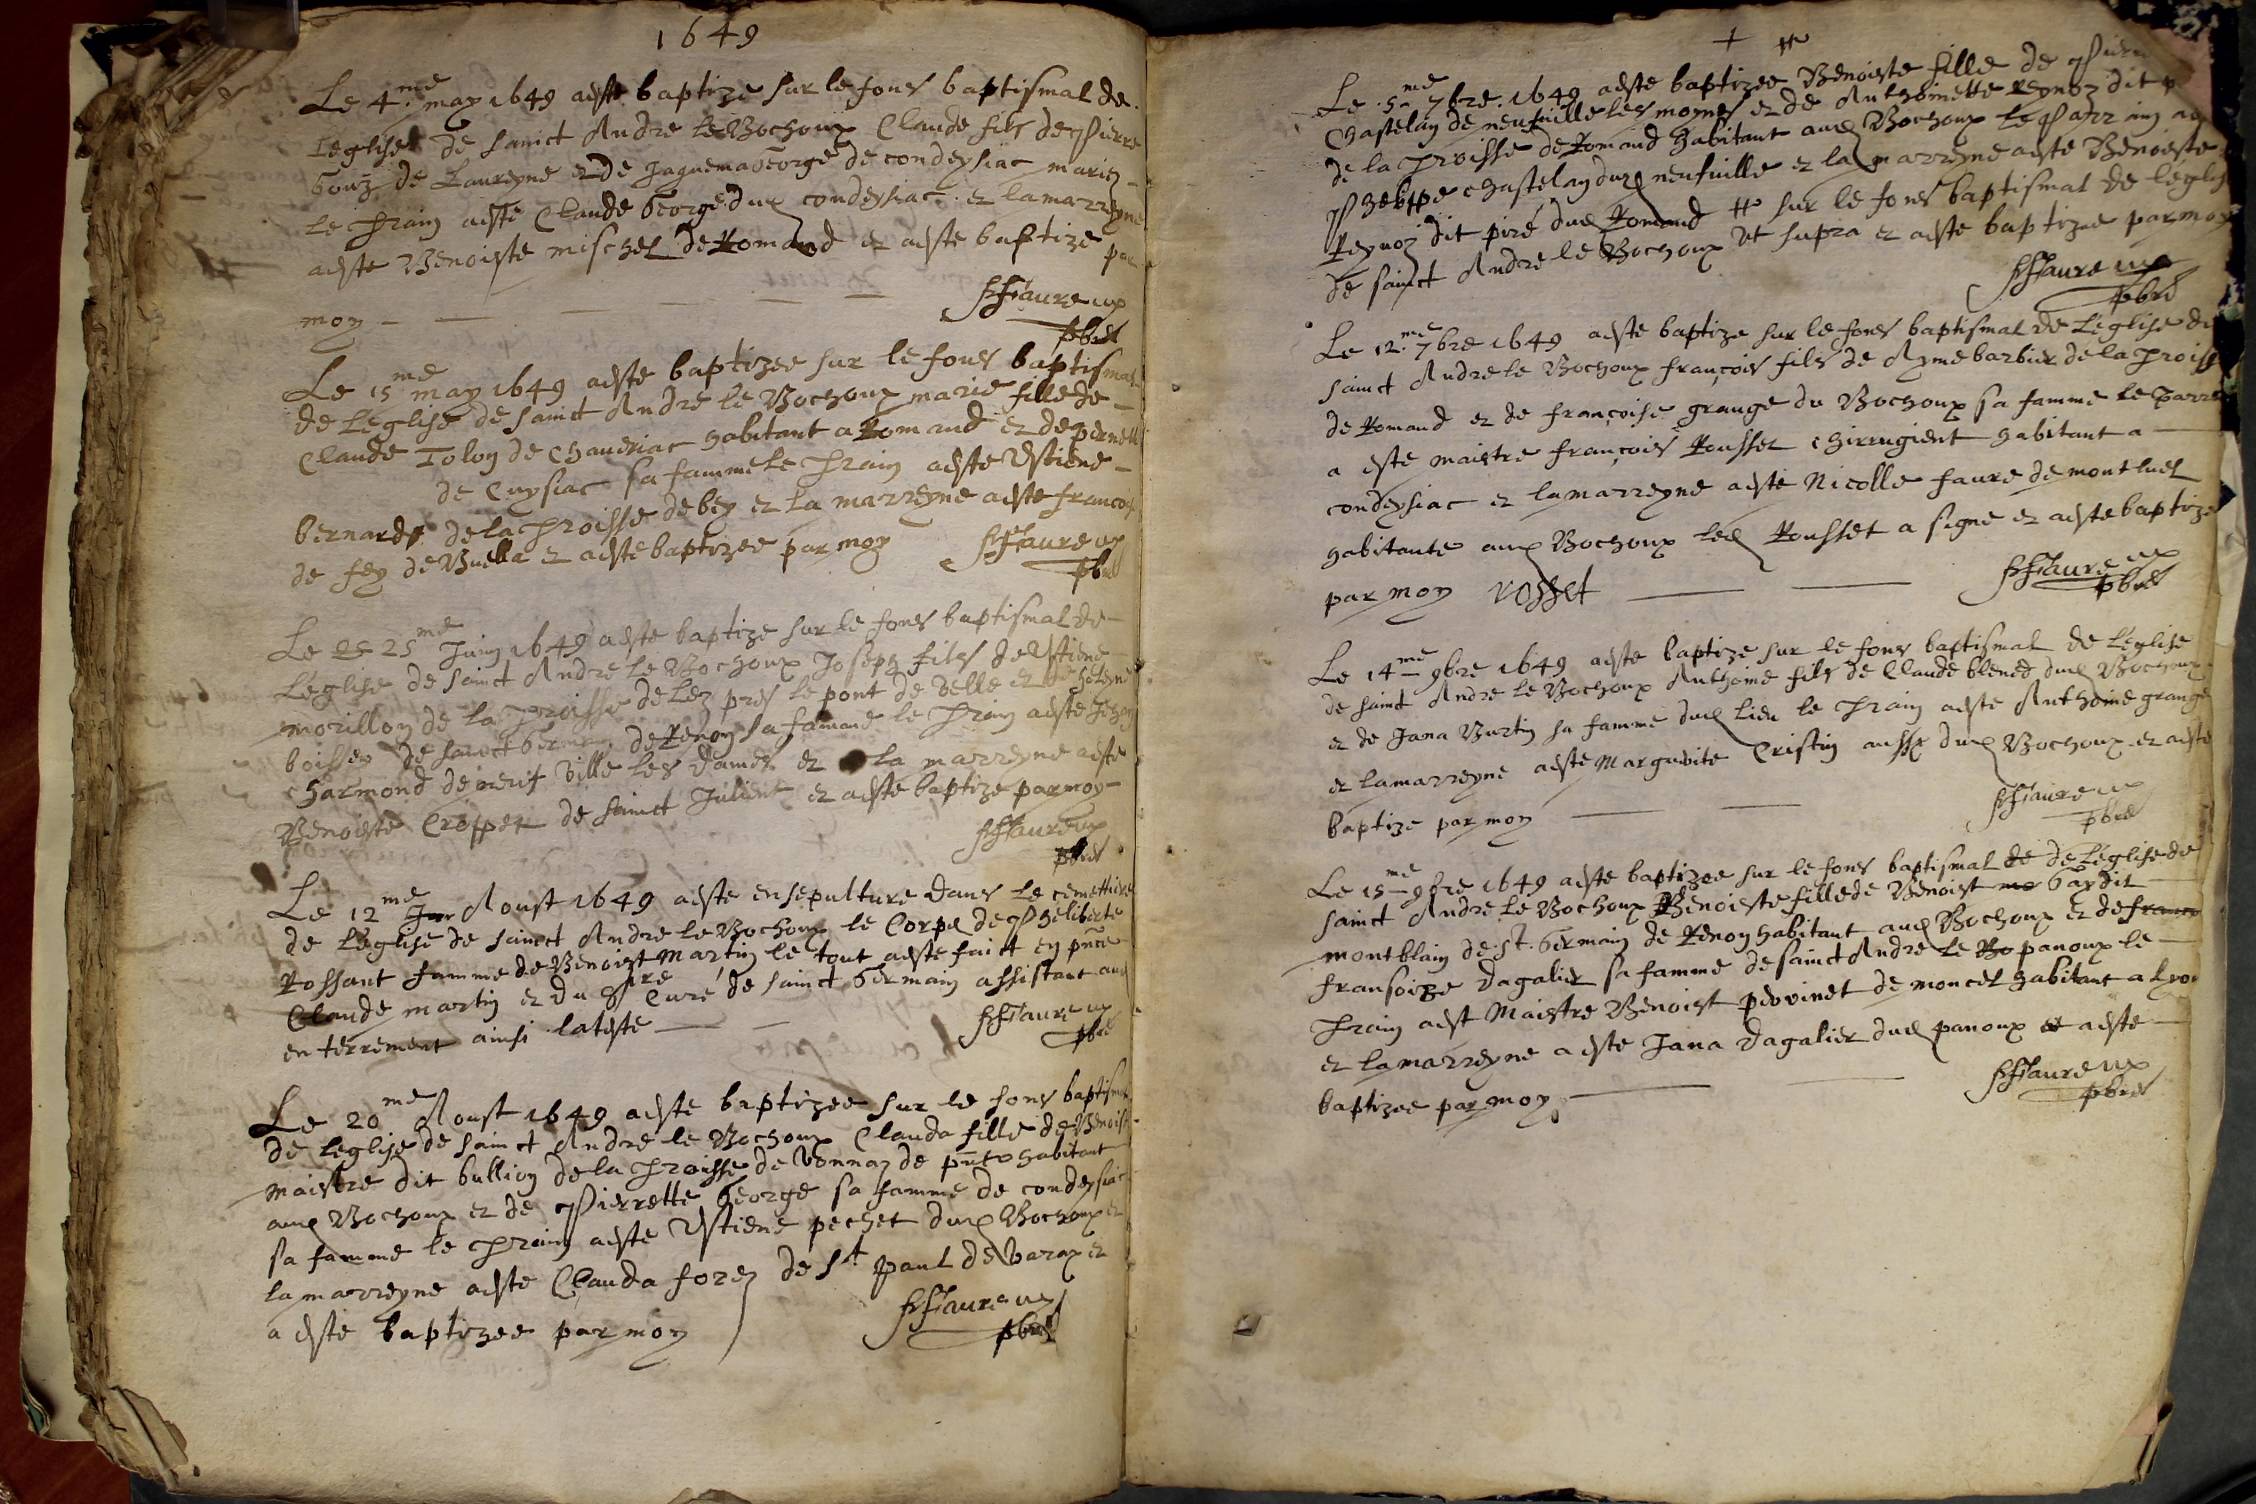 1649
Le 4.me may 1649 a este baptize sur le fons baptismal de
leglise de sainct Andre le Bochoux Claude fils de Pierre
Gouz de Laureyne et de Jaquema George de condeysiac mariez
le Prain a este Claude George dud condeysiac et la marreyne
a este Benoiste mischel de Romand et a este baptize par
moy
FFaure
pbre
Le 15me may 1649 a este baptizee sur le fons baptismal
de leglise de sainct Andre le Bochoux marie fille de
Claude Tolon de Chaveriac habitant a Romand et de pernette
de Cuysiac sa famme le Prain a este Estiene
bernard de la Proisse de bey et la marreyne a este francoise
de fey de Buella et a este baptizee par moy
FFaure
pbre
Le 25 25me Juin 1649 a este baptize sur le fons baptismal de
Leglise de sainct Andre le Bochoux Joseph fils de Estiene
morillon de la Proisse de Lez pres le pont de velle et de
boisson de sainct Germain de Renon sa famme le Prain a este Jehan
charmond de neufville les dames et la marreyne a este
Benoiste Croppet de sainct Julient et a este baptize par moy
FFaure
pbre
Le 12me Jun Aoust 1649 a este ensepulture dans le cemettiere
de Leglise de sainct Andre le Bochoux le Corps de Pheliberte
Rossant famme de Benoist Martin le tout a este faict en pnce
Claude martin et du Sre Curé de sainct Germain assistant aud
enterrement ainsi lateste
FFaure
pbre
Le 20me Aoust 1649 a este baptizee sur le fons baptismal
de leglise de sainct Andre le Bochoux Clauda fille de Benoist
Maistre dit bullion de la Proisse de Vonnaz de pnt habitant
aud Bochoux et de Pierrette George sa famme de condeysiac
sa famme le Prain a este Estiene pechet dud Bochoux et
la marreyne a este Clauda forez de St paul de Varax et
a este baptizee par moy
FFaure
pbre
Le .5.me 7bre. 1649 a este baptizee Benoiste fille de Pierre
Chastelan de neufville les moynes et de Anthoinette reynoz dit
de la Proisse de Romand habitant aud Bochoux le Parrain a
Phelippe Chastelan dud neufville et la marreyne a este Benoiste
Reynoz dit piré dud Romand sur le fons baptismal de leglise
de sainct Andre le Bochoux Ut supra et a este baptizee par moy
FFaure
pbre
Le 12.me 7bre 1649 a este baptize sur le fons baptismal de Leglise de
sainct Andre le Bochoux françois fils de Ayme barbier de la Proisse
de Romand et de françoise grange du Bochoux sa famme le Parrein
a este maistre françois Rousset chirrugient habitant a
condeysiac et la marreyne a este Nicolle faure de montluel
habitante aud Bochoux led Rousset a signe et a este baptize
par moy rosset
FFaure
pbre
Le 14me 9bre 1649 a este baptize sur le fons baptismal de Léglise
de sainct Andre le Bochoux Anthoine fils de Claude blened dud Bochoux
et de Jana Burtin sa famme dud lieu le Prain a este Anthoine grange
et la marreyne a este Marguerite Cristin aussy dud Bochoux et a este
baptize par moy
FFaure
pbre
Le 15me 9bre 1649 a este baptizee sur le fons baptismal de de Léglise de
sainct Andre le Bochoux Benoiste fille de Benoist mo Gay dit
montblain de St. Germain de Renon habitant aud Bochoux et de franco
fransoize dagalier sa famme de sainct Andre le Bo panoux le
Prain a est Maistre Benoist pevvinet de moncel habitant a Lyon
et la marreyne a este Jana dagalier dud panoux et a este
baptizee par moy
FFaure
pbre